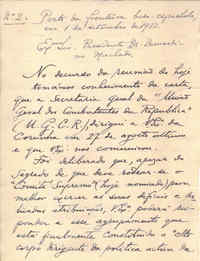 Nº 2.
Posto da fronteira luso-espanhola,
em 1 de setembro de 1931
Ex.mo Snr. Presidente Dr. Bernardino
Machado
No decurso da reunião de hoje
tomámos conhecimento da carta
que a Secretaria Geral da "União
Geral dos Combatentes da República"
(U.G.C.R.) dirigiu a V. Ex.a da
Corunha em 27 de agosto ultimo
e que V. Ex.a nos
Foi deliberado que, apezar do
segredo de que deve rodear-se o
Comité Supremo (hoje nomeado) para
melhor exercer as suas
atribuições, V. Ex.a
a esse agrupamento que
está finalmente constituido o
corpo dirigente da politica activa da